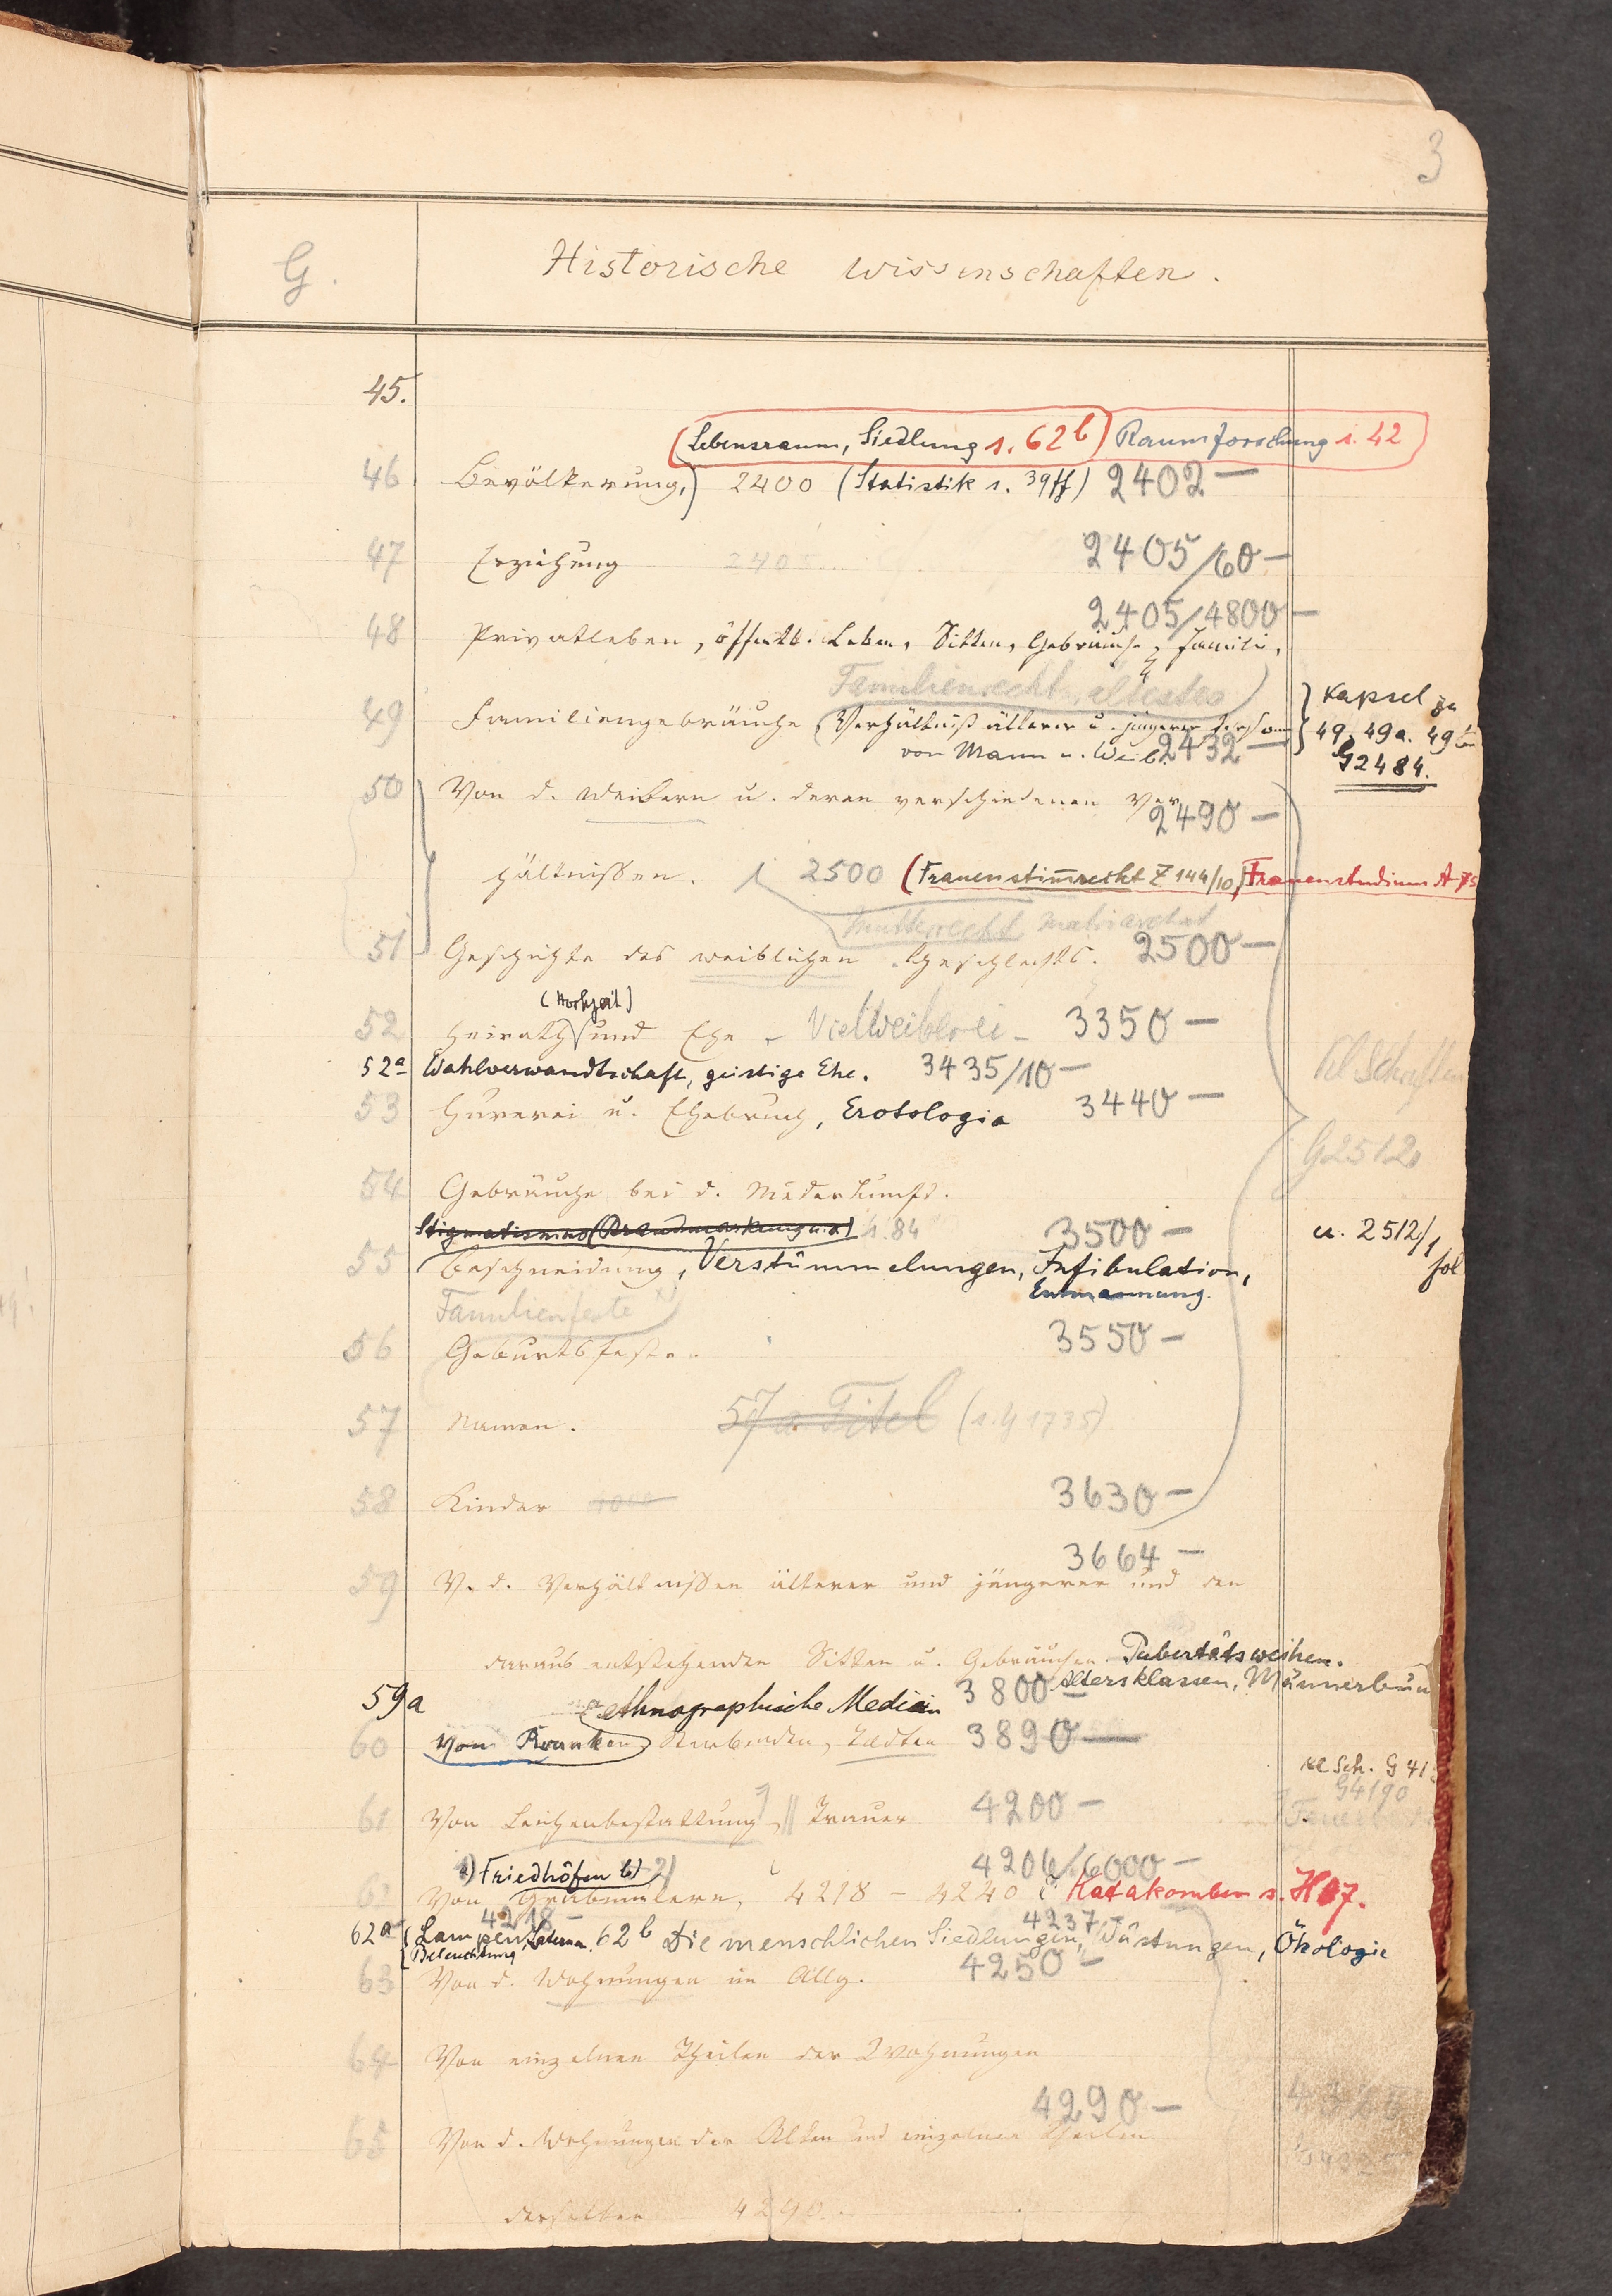 3
G. Historische Wissenschaften.
45.
(Lebensraum, Siedlung s. 62b) Raumforschung s. 42
46 Bevölkerung,) 2400 (Statistik s. 39ff) 2402 —
47 Erziehung 2405 2405/60 —
2405/4800 —
48 Privatleben, öffentl. Leben, Sitten, Gebräuche, Familie,
Familienrecht, ältestes
49 Familiengebräuche (Verhältniß älterer u. jüngerer Person
von Mann u. Weib. 2432 —
Kapsel zu
49. 49a. 49b
G2484.
50 Von d. Weibern u. deren verschiedenen Ver
2490 —
hältnißen. 2500 (Frauenstim̅recht Z 144/10) Frauenstudium A 75
Mutterrecht, Matriarchat
51 Geschichte des weiblichen Geschlechts. 2500 —
(Hochzeit)
52 Heirath und Ehe - Vielweiberei - 3350 —
52a Wahlverwandtschaft, geistige Ehe. 3435/10 —
53 Hurerei u. Ehebruch, Erotologia 3440 —
Kl Schriften
G2512
54 Gebräuche bei d. Niederkunft.
Stigmatismus (Brandmarkung u.a) s. 84 3500 —
u. 2512/1
fol
55 Beschneidung, Verstümmelungen, Infibulation,
Entmannung.
Familienfeste
56 Geburtsfeste. 3550 —
57 Namen. 57a Titel (s. G 1735)
58 Kinder 3630 —
3664 —
59 V. d. Verhältnißen älterer und jüngerer und den
daraus entstehenden Sitten u. Gebräuchen Pubertätsweihen.
Altersklassen, Männerbün
59a ethnographische Medicin 3800 —
60 Von Kranken, Sterbenden, Todten 3890 —
Kl Sch. G 41
G4190
61 Von Leichenbestattung, Trauer 4200 —
a) Friedhöfen b) 4206/6000 —
62 Von Grabmälern, 4218 - 4240 Katakomben s. H 07.
4218 — 4237 —
62a (Lampen, Latern. 62b Die menschlichen Siedlungen, Wüstungen, Ökologie
Beleuchtung
63 Von d. Wohnungen im Allg. 4250 —
64 Von einzelnen Theilen der Wohnungen
4290 —
65 Von d. Wohnungen der Alten und einzelnen Theilen
derselben 4290.